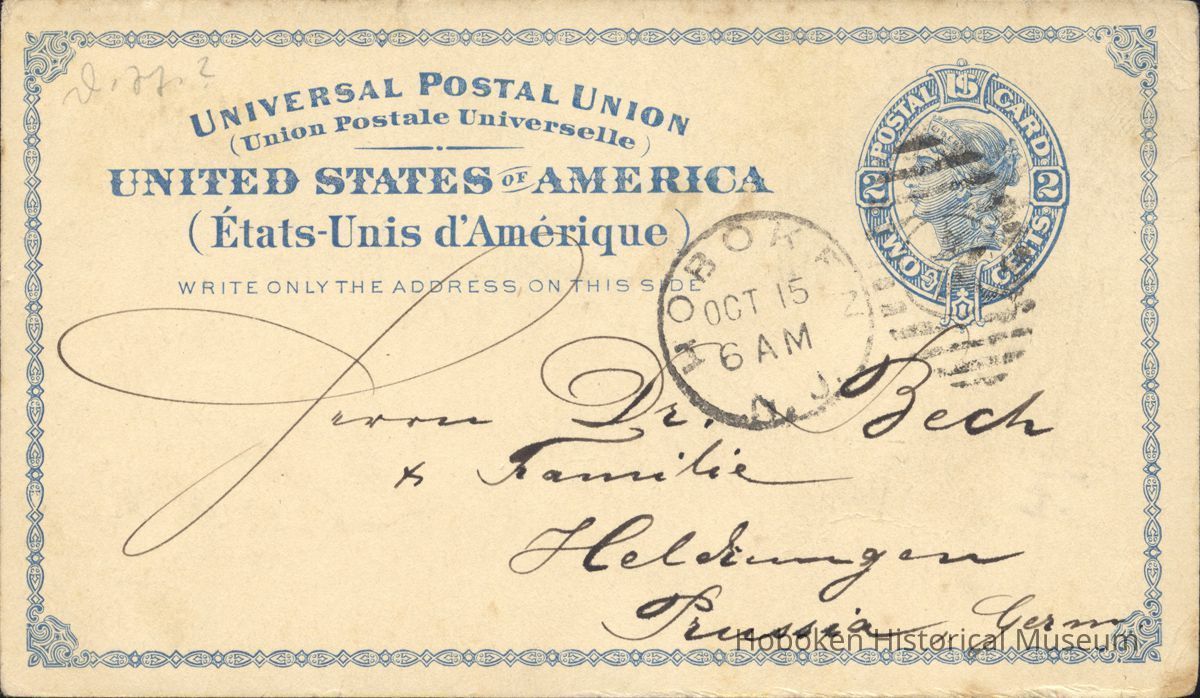 UNIVERSAL POSTAL UNION
(Union Postale Universelle)
UNITED STATES OF AMERICA
(États-Unis d'Amérique)
WRITE ONLY THE ADDRESS ON THIS SIDE
U.S. POSTAL CARD
2 2
TWO CENTS
HOBOKEN
OCT 15
6 AM
N.J.
Herrn Dr. Bech
& Familie
Heldrungen
Prussia, Germ.
Hoboken Historical Museum